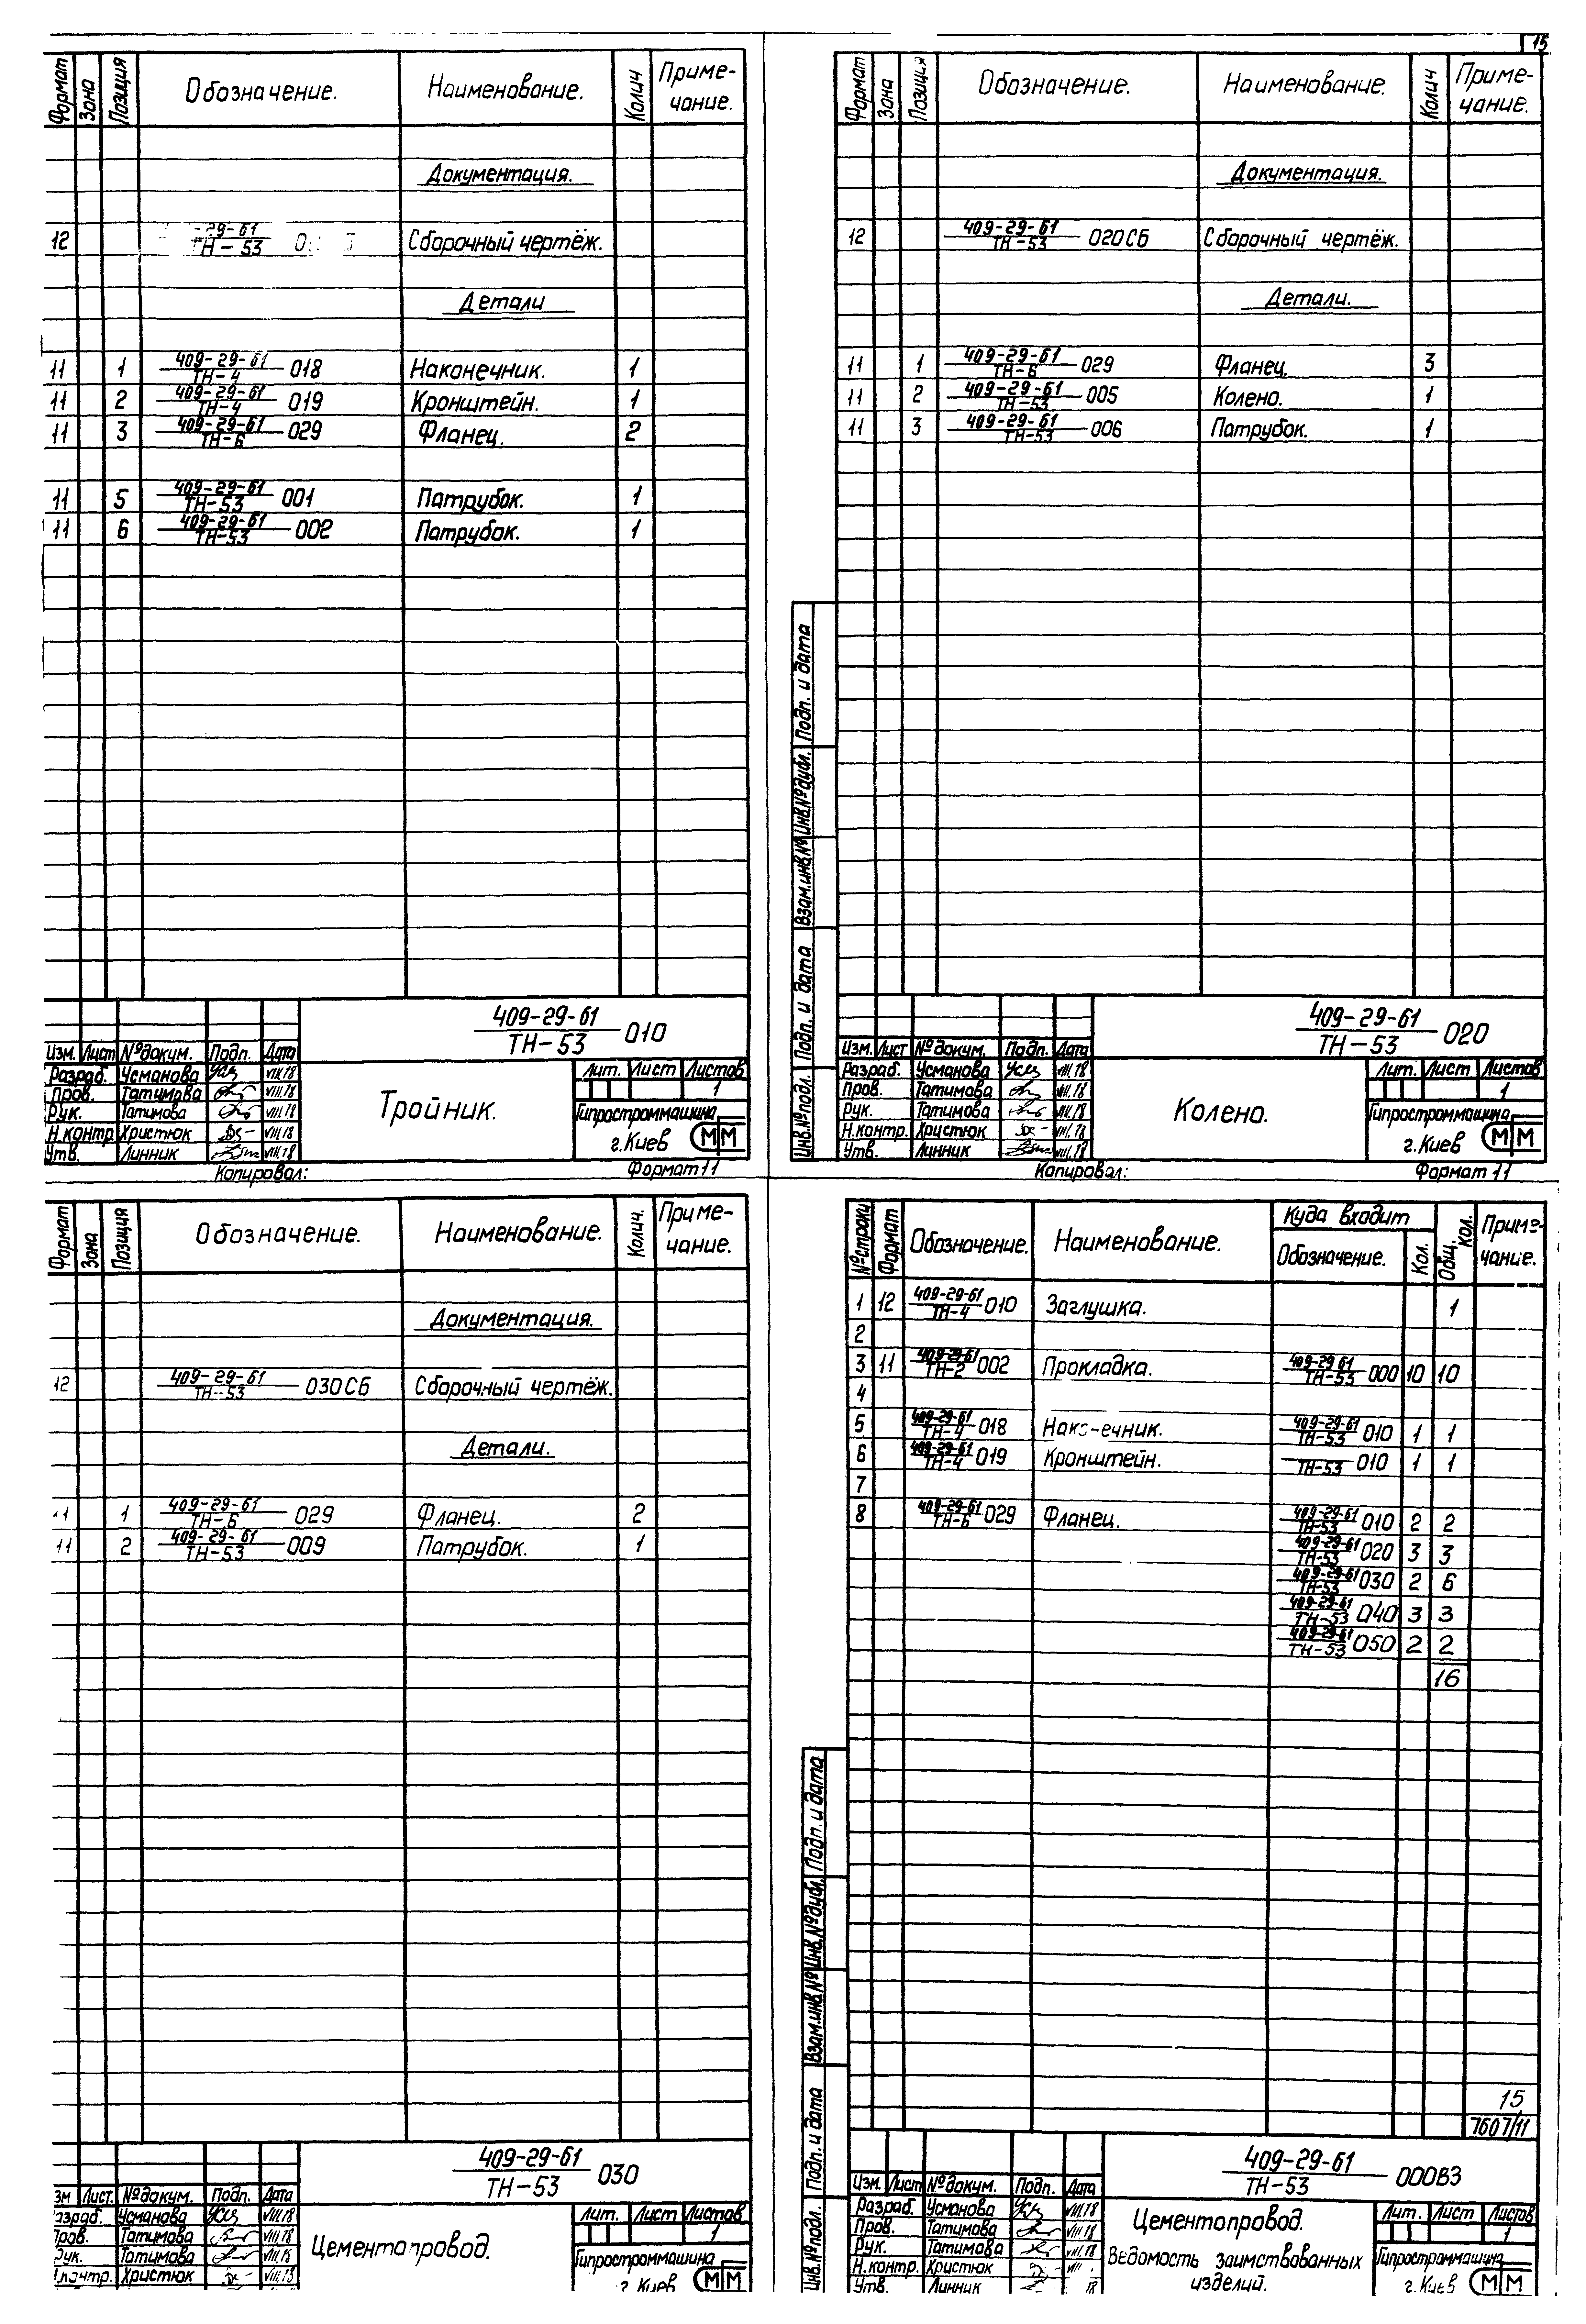 15
Формат Зона Позиция Обозначение. Наименование. Колич Приме-
чание.
Документация.
12 -29-61/ТН-53 Сборочный чертёж.
Детали
11 1 409-29-61/ТН-4 018 Наконечник. 1
11 2 409-29-61/ТН-4 019 Кронштейн. 1
11 3 409-29-61/ТН-6 029 Фланец. 2
11 5 409-29-61/ТН-53 001 Патрубок. 1
11 6 409-29-61/ТН-53 002 Патрубок. 1
409-29-61/ТН-53 010
Изм. Лист №докум. Подп. Дата
Разраб. Усманова VIII.78
Пров. Татимова VIII.78
Рук. Татимова VIII.78
Н.контр. Христюк VIII.78
Утв. Линник VIII.78
Тройник.
Лит. Лист Листов
1
Гипростроммашина
г.Киев ММ
Копировал: Формат 11
Формат Зона Позиция Обозначение. Наименование. Колич Приме-
чание.
Документация.
12 409-29-61/ТН-53 020СБ Сборочный чертёж.
Детали.
11 1 409-29-61/ТН-6 029 Фланец. 3
11 2 409-29-61/ТН-53 005 Колено. 1
11 3 409-29-61/ТН-53 006 Патрубок. 1
Инв.№подл. Подп. и дата Взам.инв.№ Инв.№дубл. Подп. и дата
409-29-61/ТН-53 020
Изм. Лист №докум. Подп. Дата
Разраб. Усманова VIII.78
Пров. Татимова VIII.78
Рук. Татимова VIII.78
Н.контр. Христюк VIII.78
Утв. Линник VIII.78
Колено.
Лит. Лист Листов
1
Гипростроммашина
г.Киев ММ
Копировал: Формат 11
Формат Зона Позиция Обозначение. Наименование. Колич. Приме-
чание.
Документация.
12 409-29-61/ТН-53 030СБ Сборочный чертёж.
Детали.
11 1 409-29-61/ТН-6 029 Фланец. 2
11 2 409-29-61/ТН-53 009 Патрубок. 1
409-29-61/ТН-53 030
зм Лист. №докум. Подп. Дата
азраб. Усманова VIII.78
Пров. Татимова VIII.78
Рук. Татимова VIII.78
.контр. Христюк VIII.78
Цементопровод.
Лит. Лист Листов
1
Гипростроммашина
г.Киев ММ
№строки Формат Обозначение. Наименование. Куда входит Общ. кол. Приме-
Обозначение. Кол. чание.
1 12 409-29-61/ТН-4 010 Заглушка. 1
2
3 11 409-29-61/ТН-2 002 Прокладка. 409-29-61/ТН-53 000 10 10
4
5 409-29-61/ТН-4 018 Нако ечник. 409-29-61/ТН-53 010 1 1
6 409-29-61/ТН-4 019 Кронштейн. ТН-53 010 1 1
7
8 409-29-61/ТН-6 029 Фланец. 409-29-61/ТН-53 010 2 2
409-29-61/ТН-53 020 3 3
409-29-61/ТН-53 030 2 6
409-29-61/ТН-53 040 3 3
409-29-61/ТН-53 050 2 2
16
15
7607/11
Инв.№подл. Подп. и дата Взам.инв.№ Инв.№дубл. Подп. и дата
409-29-61/ТН-53 000ВЗ
Изм. Лист №докум. Подп. Дата
Разраб. Усманова VIII.78
Пров. Татимова VIII.78
Рук. Татимова VIII.78
Н.контр. Христюк VIII
Утв. Линник 78
Цементопровод.
Ведомость заимствованных
изделий.
Лит. Лист Листов
1
Гипростроммашина
г.Киев ММ